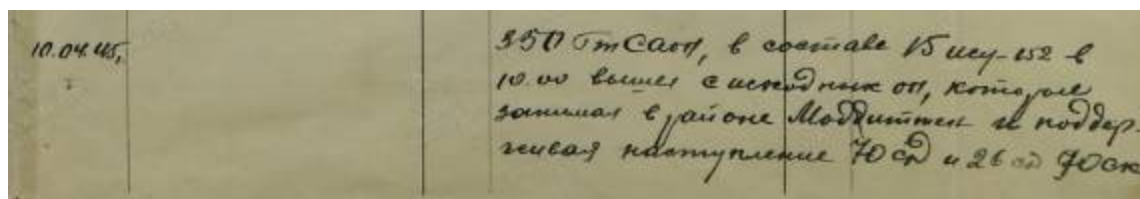 10.04.45, 350 ГтСАП, в составе 15 ису-152 в
10.00 вышел с исходных оп, которые
занимал в районе Модиттен и поддер-
живая наступление 70 сд и 26 сд 90 ск